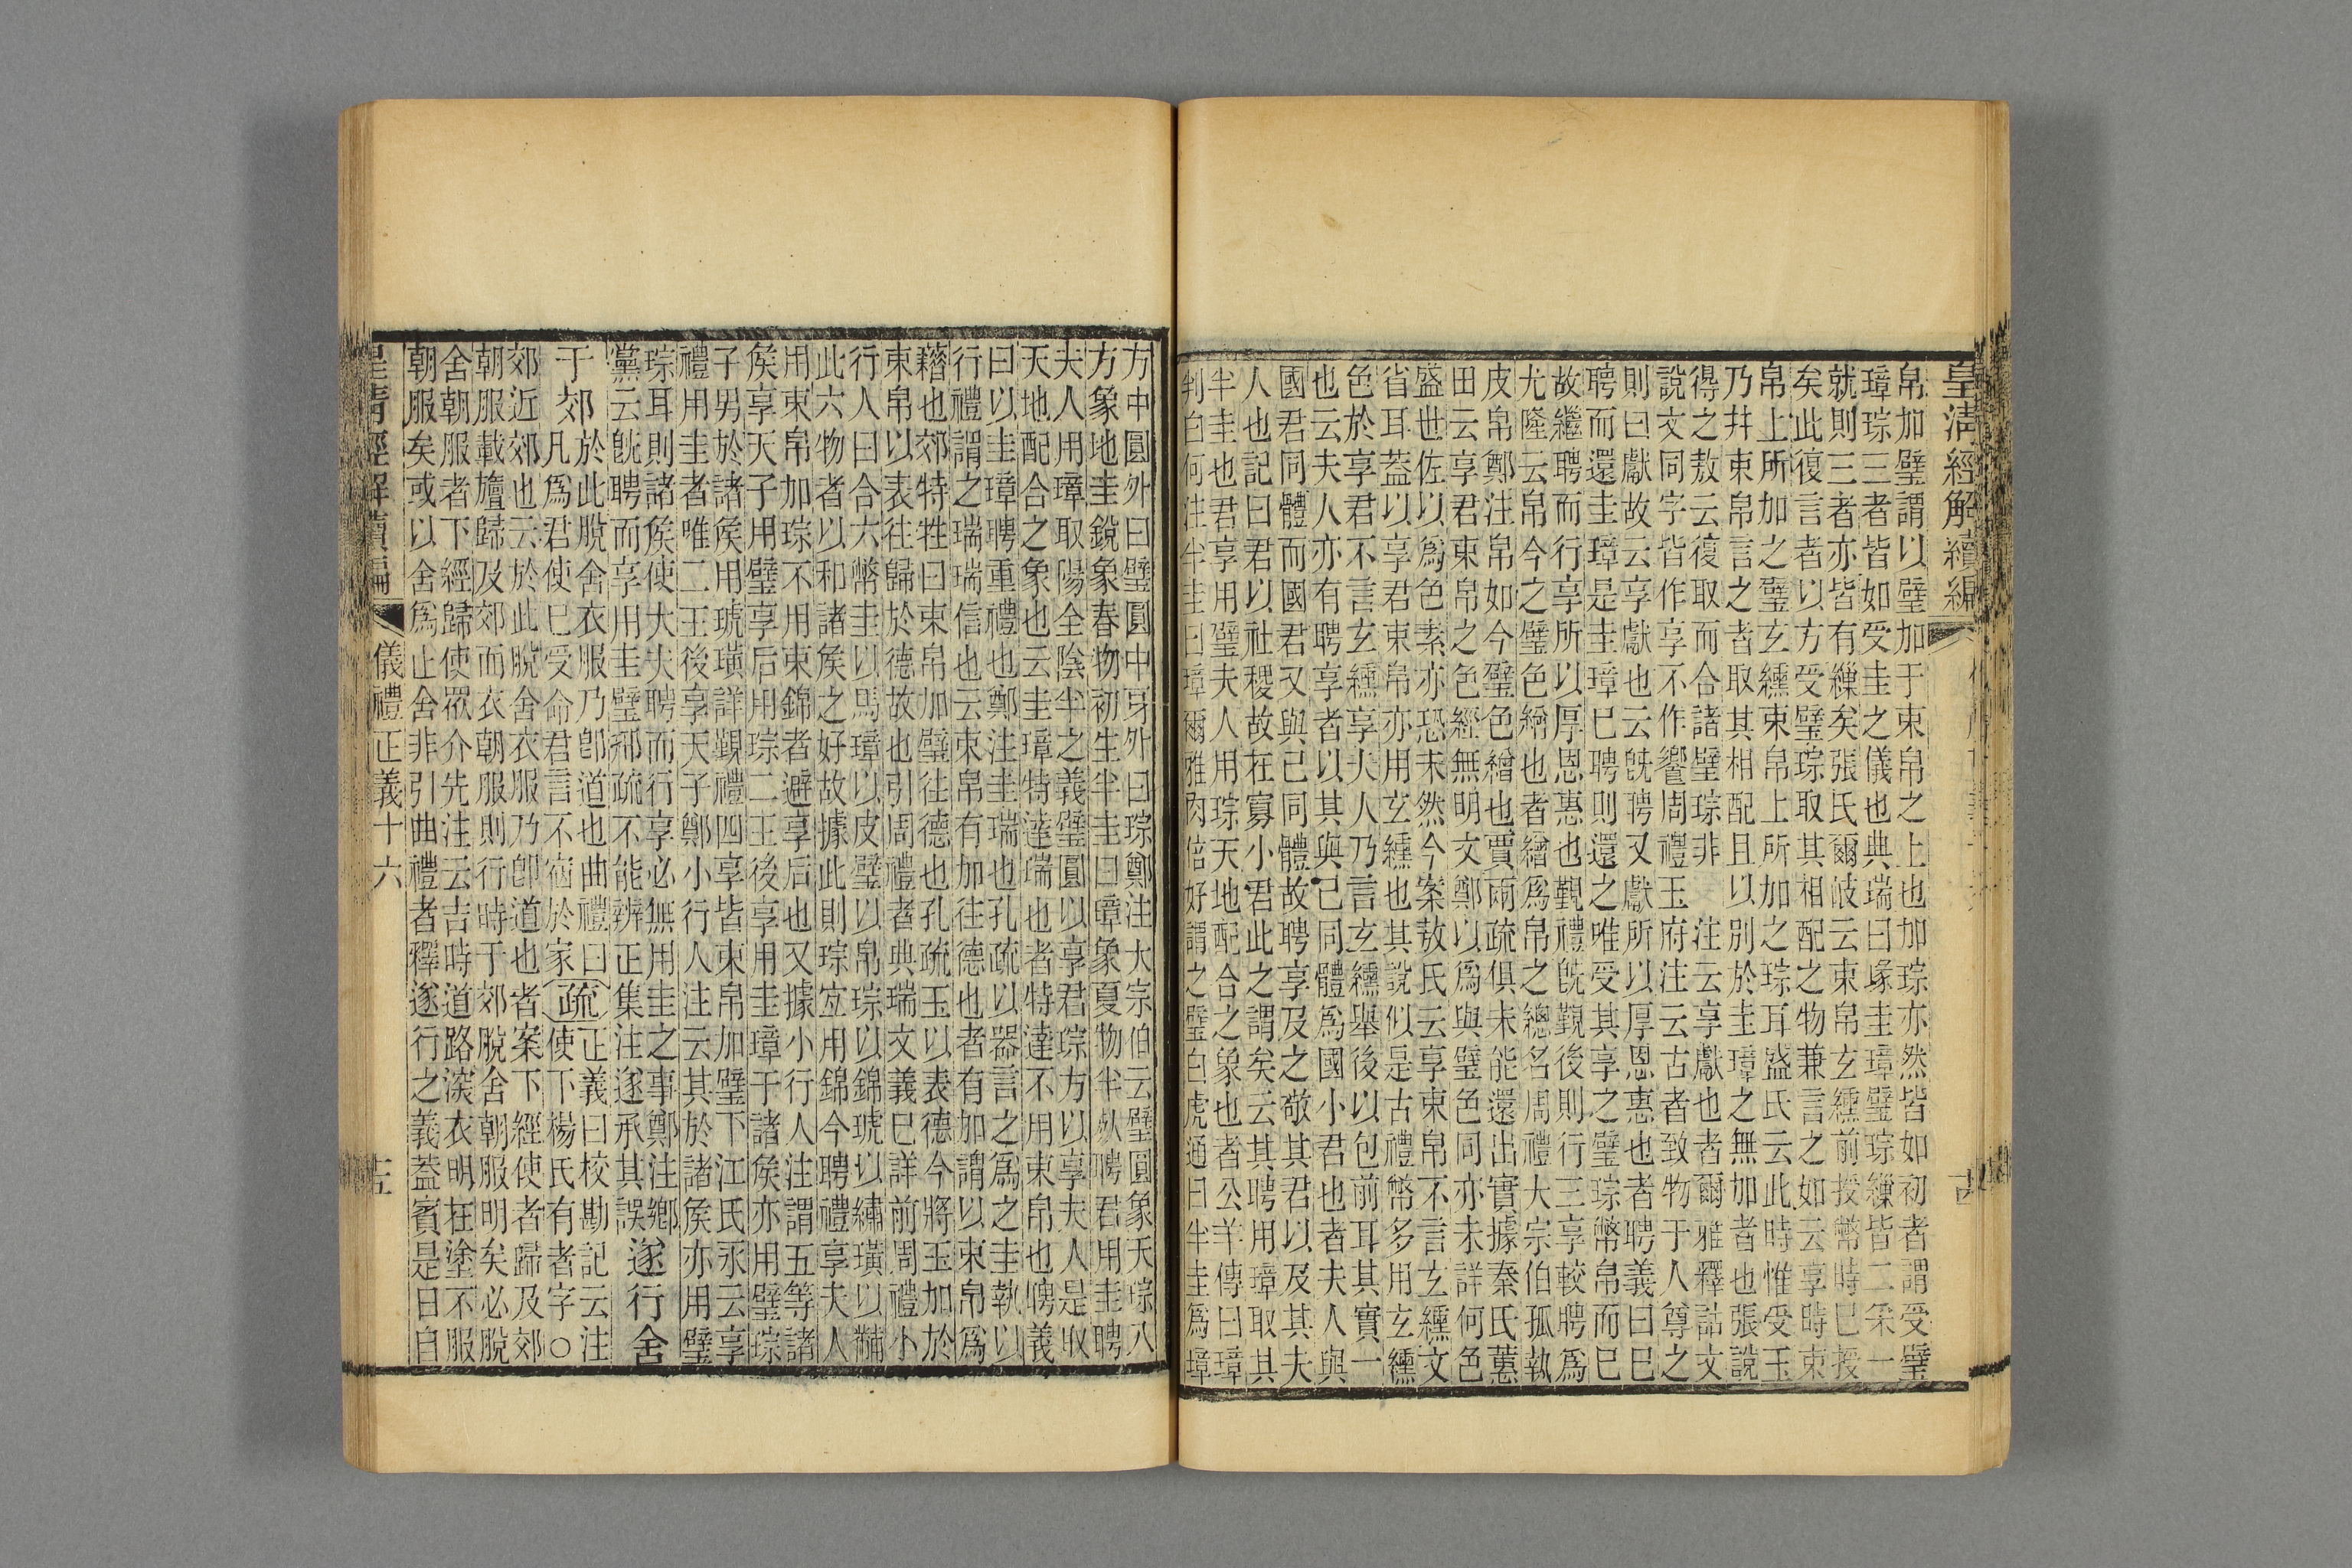 皇清經解續編
帛加璧謂以璧加于束帛之上也加琮亦然皆如初者謂受璧
璋琮三者皆如受圭之儀也典瑞曰瑑圭璋璧琮繅皆二采一
就則三者亦皆有繅矣張氏爾岐云束帛玄纁前授幣時巳授
矣此復言者以方受璧琮取其相配之物兼言之如云享時束
帛上所加之璧玄纁束帛上所加之琮耳盛氏云此時惟受玉
乃幷束帛言之者取其相配且以別於圭璋之無加者也張說
得之敖云復取而合諸璧琮非 注云享獻也者爾雅釋詁文
說文同字皆作享不作饗周禮玉府注云古者致物于人尊之
則曰獻故云享獻也云旣聘又獻所以厚恩惠也者聘義曰巳
聘而還圭璋是圭璋巳聘則還之唯受其享之璧琮幣帛而巳
故繼聘而行享所以厚恩惠也覲禮旣覲後則行三享較聘爲
尤隆云帛今之璧色繒也者繒爲帛之總名周禮大宗伯孤執
皮帛鄭注帛如今璧色繒也賈兩疏俱未能還出實據秦氏蕙
田云享君束帛之色經無明文鄭以爲與璧色同亦未詳何色
盛世佐以爲色素亦恐未然今案敖氏云享束帛不言玄纁文
省耳蓋以享君束帛亦用玄纁也其說似是古禮幣多用玄纁
色於享君不言玄纁享夫人乃言玄纁舉後以包前耳其實一
也云夫人亦有聘享者以其與己同體爲國小君也者夫人與
國君同體而國君又與己同體故聘享及之敬其君以及其夫
人也記曰君以社稷故在寡小君此之謂矣云其聘用璋取其
半圭也君享用璧夫人用琮天地配合之象也者公羊傳曰璋
判白何注半圭曰璋爾雅肉倍好謂之璧白虎通曰半圭爲璋
方中圓外曰璧圓中牙外曰琮鄭注大宗伯云璧圓象天琮八
方象地圭銳象春物初生半圭曰璋象夏物半死聘君用圭聘
夫人用璋取陽全陰半之義璧圓以享君琮方以享夫人是取
天地配合之象也云圭璋特達瑞也者特達不用束帛也聘義
曰以圭璋聘重禮也鄭注圭瑞也孔疏以器言之爲之圭執以
行禮謂之瑞瑞信也云束帛有加往德也者有加謂以束帛爲
藉也郊特牲曰束帛加璧往德也孔疏玉以表德今將玉加於
束帛以表往歸於德故也引周禮者典瑞文義巳詳前周禮小
行人曰合六幣圭以馬璋以皮璧以帛琮以錦琥以繡璜以黼
此六物者以和諸侯之好故據此則琮宐用錦今聘禮享夫人
用束帛加琮不用束錦者避享后也又據小行人注謂五等諸
侯享天子用璧享后用琮二王後享用圭璋于諸侯亦用璧琮
子男於諸侯用琥璜詳覲禮四享皆束帛加璧下江氏永云享
禮用圭者唯二王後享天子鄭小行人注云其於諸侯亦用璧
琮耳則諸侯使大夫聘而行享必無用圭之事鄭注鄕
黨云旣聘而享用圭璧邢疏不能辨正集注遂承其誤遂行舍
于郊於此脫舍衣服乃卽道也曲禮曰
凡爲君使巳受命君言不宿於家疏正義曰校勘記云注
使下楊氏有者字○
郊近郊也云於此脫舍衣服乃卽道也者案下經使者歸及郊
朝服載旜歸及郊而衣朝服則行時于郊脫舍朝服明矣必脫
舍朝服者下經歸使眾介先注云吉時道路深衣明在塗不服
朝服矣或以舍爲止舍非引曲禮者釋遂行之義蓋賓是日自
皇清經解續編 儀禮正義十六